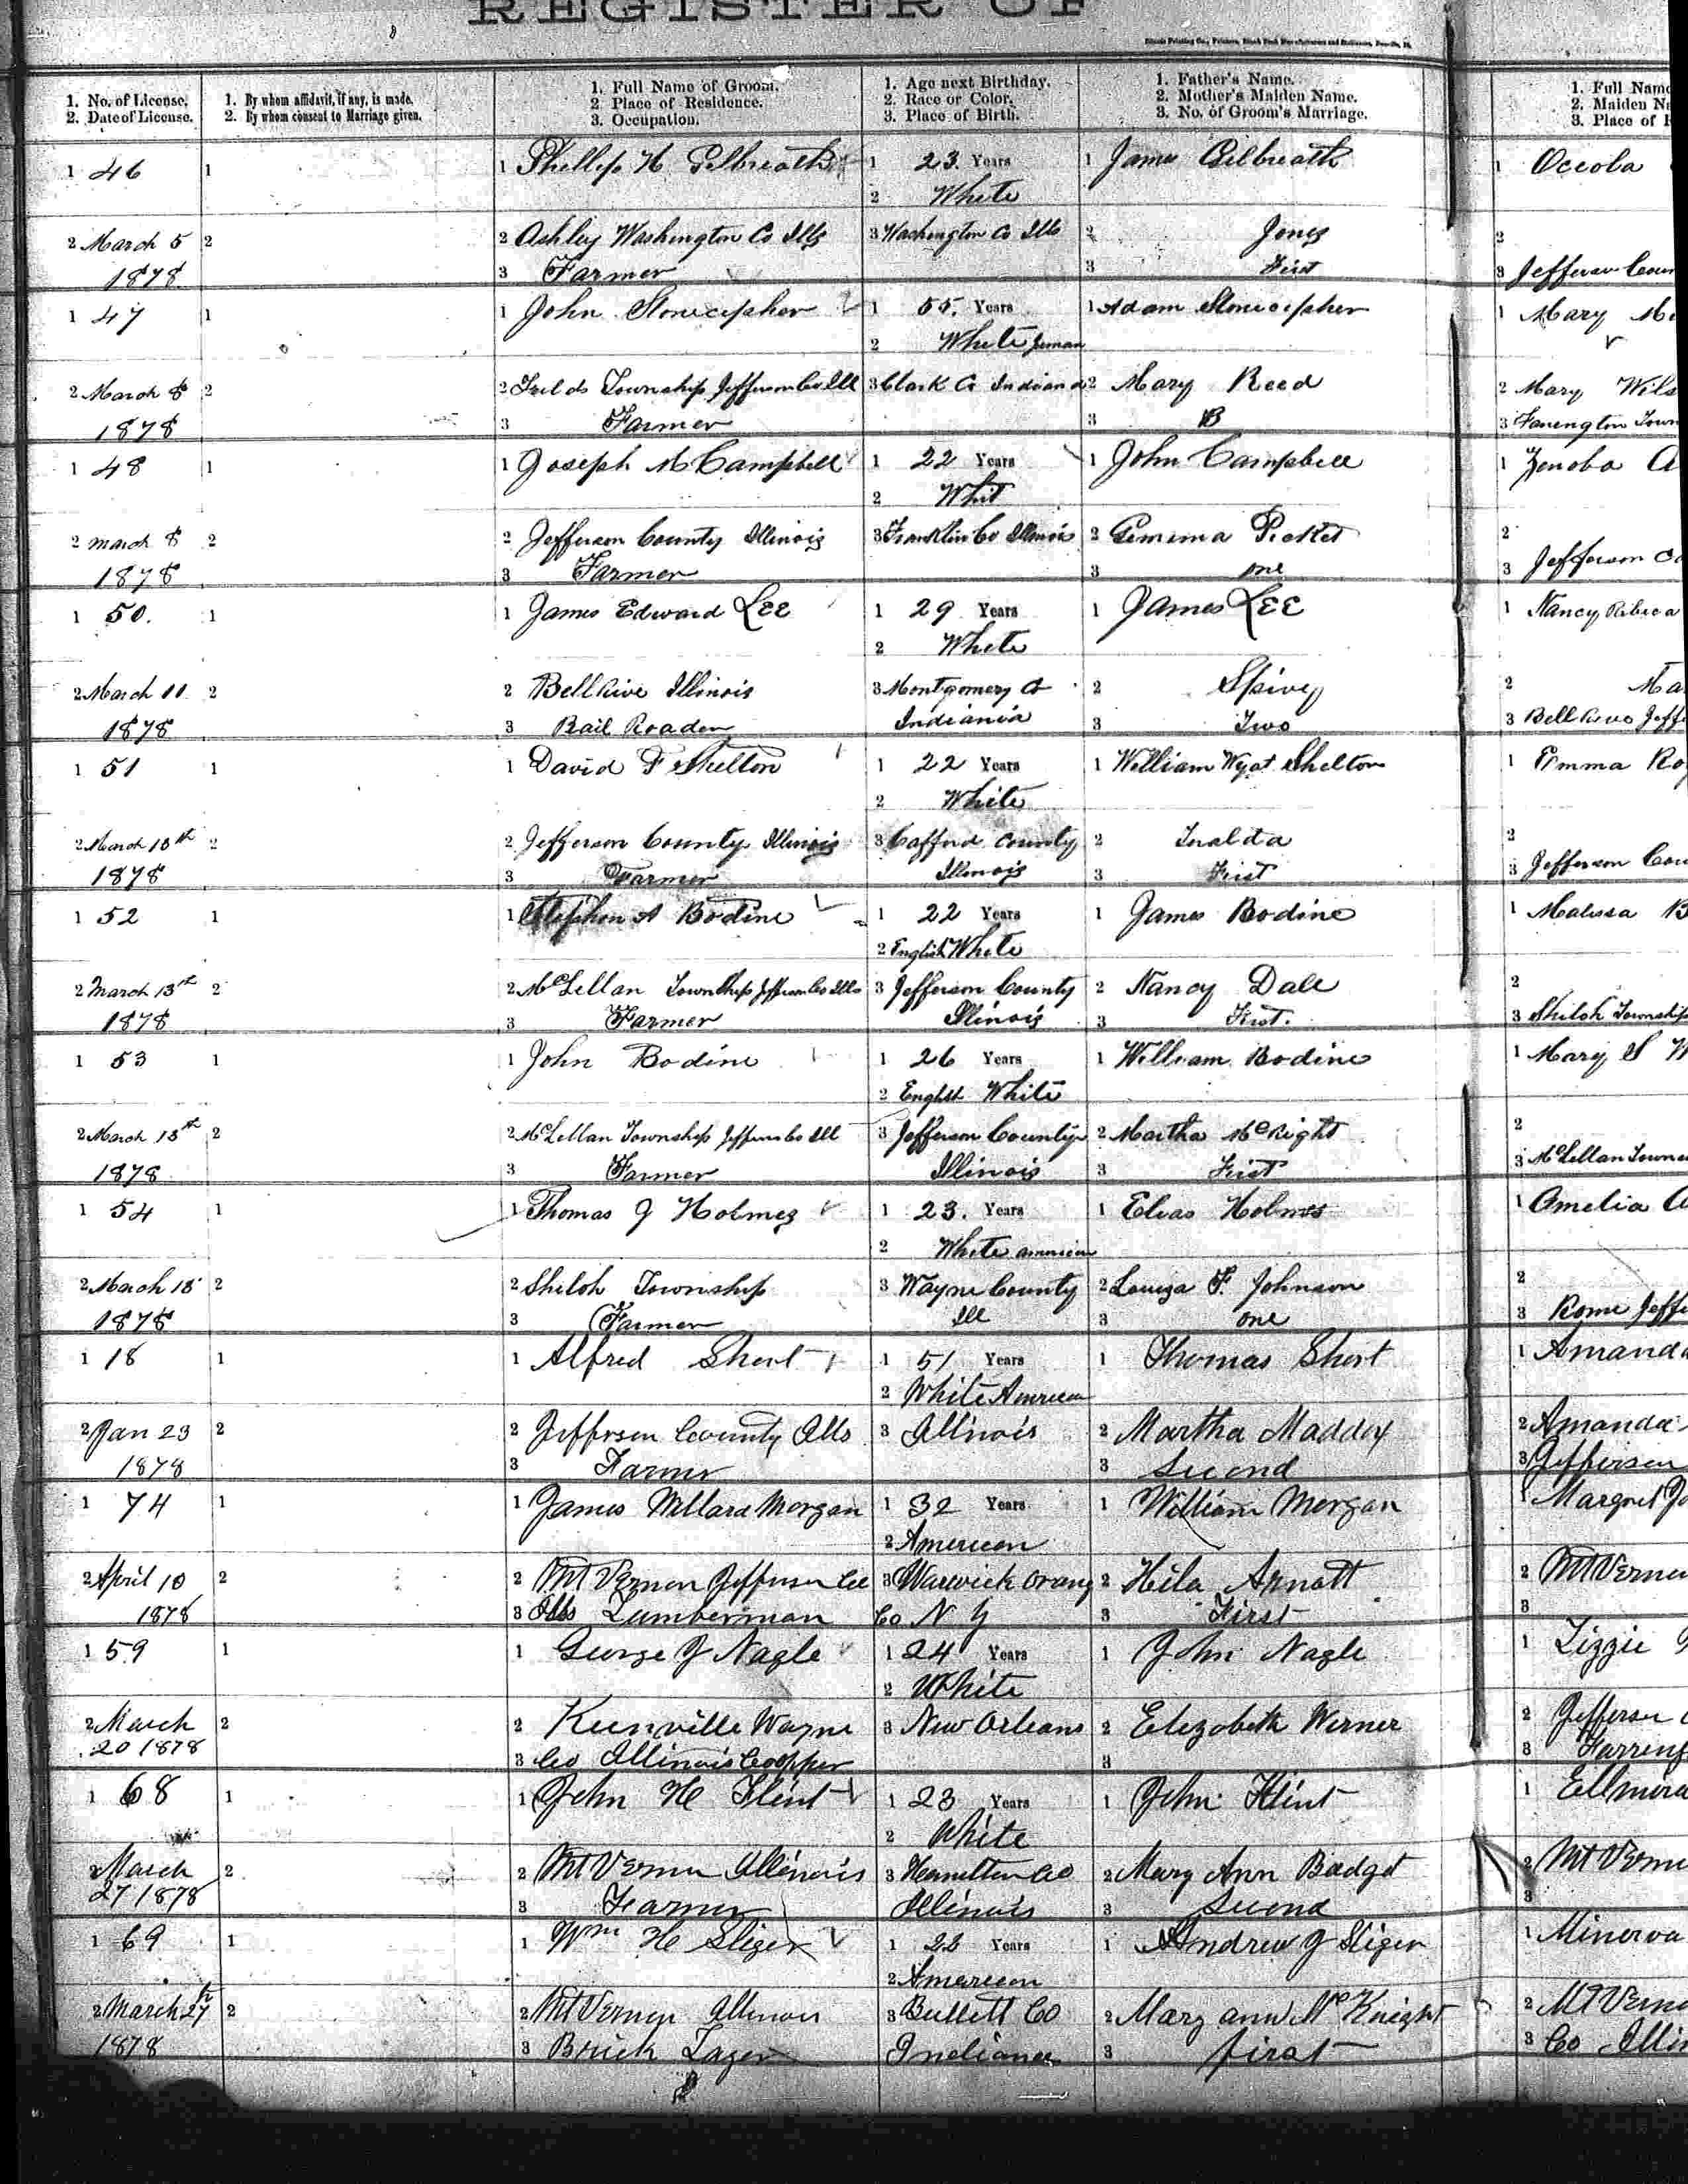 REGISTER OF
1. No. of License.
2. Date of License.
1. By whom affidavit, if any, is made.
2. By whom consent to Marriage given.
1. Full Name of Groom.
2. Place of Residence.
3. Occupation.
1. Age next Birthday.
2. Race or Color.
3. Place of Birth.
1. Father's Name.
2. Mother's Maiden Name.
3. No. of Groom's Marriage.
1. Full Name
2. Maiden Na
3. Place of R
1 46 1 1 Phillip H Gilbreath 1 23 Years 1 James Gilbreath 1 Oceola
2 White
2 March 5 2 2 Ashley Washington Co Ills 3 Washington Co Ills 2 Jones 2
1878 3 Farmer 3 First 3 Jefferson Coun
1 47 1 1 John Stonecipher 1 55 Years 1 Adam Stonecipher 1 Mary Mc
2 White German
2 March 8 2 2 Fields Township Jefferson Co Ill 3 Clark Co Indiana 2 Mary Reed 2 Mary Wils
1878 3 Farmer 3 B 3 Farrington Town
1 48 1 1 Joseph M Campbell 1 22 Years 1 John Campbell 1 Zenoba A
2 Whit
2 March 8 2 2 Jefferson County Illinois 3 Franklin Co Illinois 2 Gemima Picket 2
1878 3 Farmer 3 one 3 Jefferson Co
1 50. 1 1 James Edward LEE 1 29 Years 1 James LEE 1 Nancy Ribeca
2 White
2 March 11 2 2 Bellrive Illinois 3 Montgomery Co 2 Spivey 2 Ma
1878 3 Rail Roader Indiania 3 Two 3 Bell Rive Jeffe
1 51 1 1 David F Shelton 1 22 Years 1 William Wyat Shelton 1 Emma Ro
2 White
2 March 13th 2 2 Jefferson County Illinois 3 Cafford County 2 Tralda 2
1878 3 Farmer Illinois 3 First 3 Jefferson Cou
1 52 1 1 Stephen A Bodine 1 22 Years 1 James Bodine 1 Malissa B
2 English White
2 March 13th 2 2 McLellan Township Jefferson Co Ills 3 Jefferson County 2 Nancy Dale 2
1878 3 Farmer Illinois 3 First. 3 Shiloh Township
1 53 1 1 John Bodine 1 26 Years 1 William Bodine 1 Mary S W
2 English White
2 March 13th 2 2 McLellan Township Jefferson Co Ill 3 Jefferson County 2 Martha McRight 2
1878 3 Farmer Illinois 3 First 3 McLellan Towns
1 54 1 1 Thomas J Holmes 1 23. Years 1 Elias Holmes 1 Amelia A
2 White American
2 March 18 2 2 Shiloh Township 3 Wayne County 2 Louiza F. Johnson 2
1878 3 Farmer Ill 3 one 3 Rome Jeffe
1 18 1 1 Alfred Short 1 51 Years 1 Thomas Short 1 Amanda
2 White American
2 Jan 23 2 2 Jefferson County Ills 3 Illinois 2 Martha Maddox 2 Amanda
1878 3 Farmer 3 Second 3 Jefferson
1 74 1 1 James Willard Morgan 1 32 Years 1 William Morgan 1 Margret Jo
2 American
2 April 10 2 2 Mt Vernon Jefferson Co 3 Warwick Orang 2 Hila Arnott 2 Mt Verno
1878 3 Ills Lumberman Co N Y 3 First 3
1 59 1 1 George J Nagle 1 24 Years 1 John Nagle 1 Lizzie
2 White
2 March 2 2 Keenville Wayne 3 New Orleans 2 Elizabeth Werner 2 Jefferson C
20 1878 3 Co Illinois Coopper 3 3 Farring
1 68 1 1 John H Flint 1 23 Years 1 John Flint 1 Ellmira
2 White
2 March 2 2 Mt Vernon Illinois 3 Hamilton Co 2 Mary Ann Badget 2 Mt Verno
27 1878 3 Farmer Illinois 3 Second 3
1 69 1 1 Wm H Sliger 1 22 Years 1 Andrew J Sliger 1 Minerva
2 American
2 March 27th 2 2 Mt Vernon Illinois 3 Bullett Co 2 Mary ann McKnight 2 Mt Verno
1878 3 Brick Layer Indiana 3 first 3 Co Illin